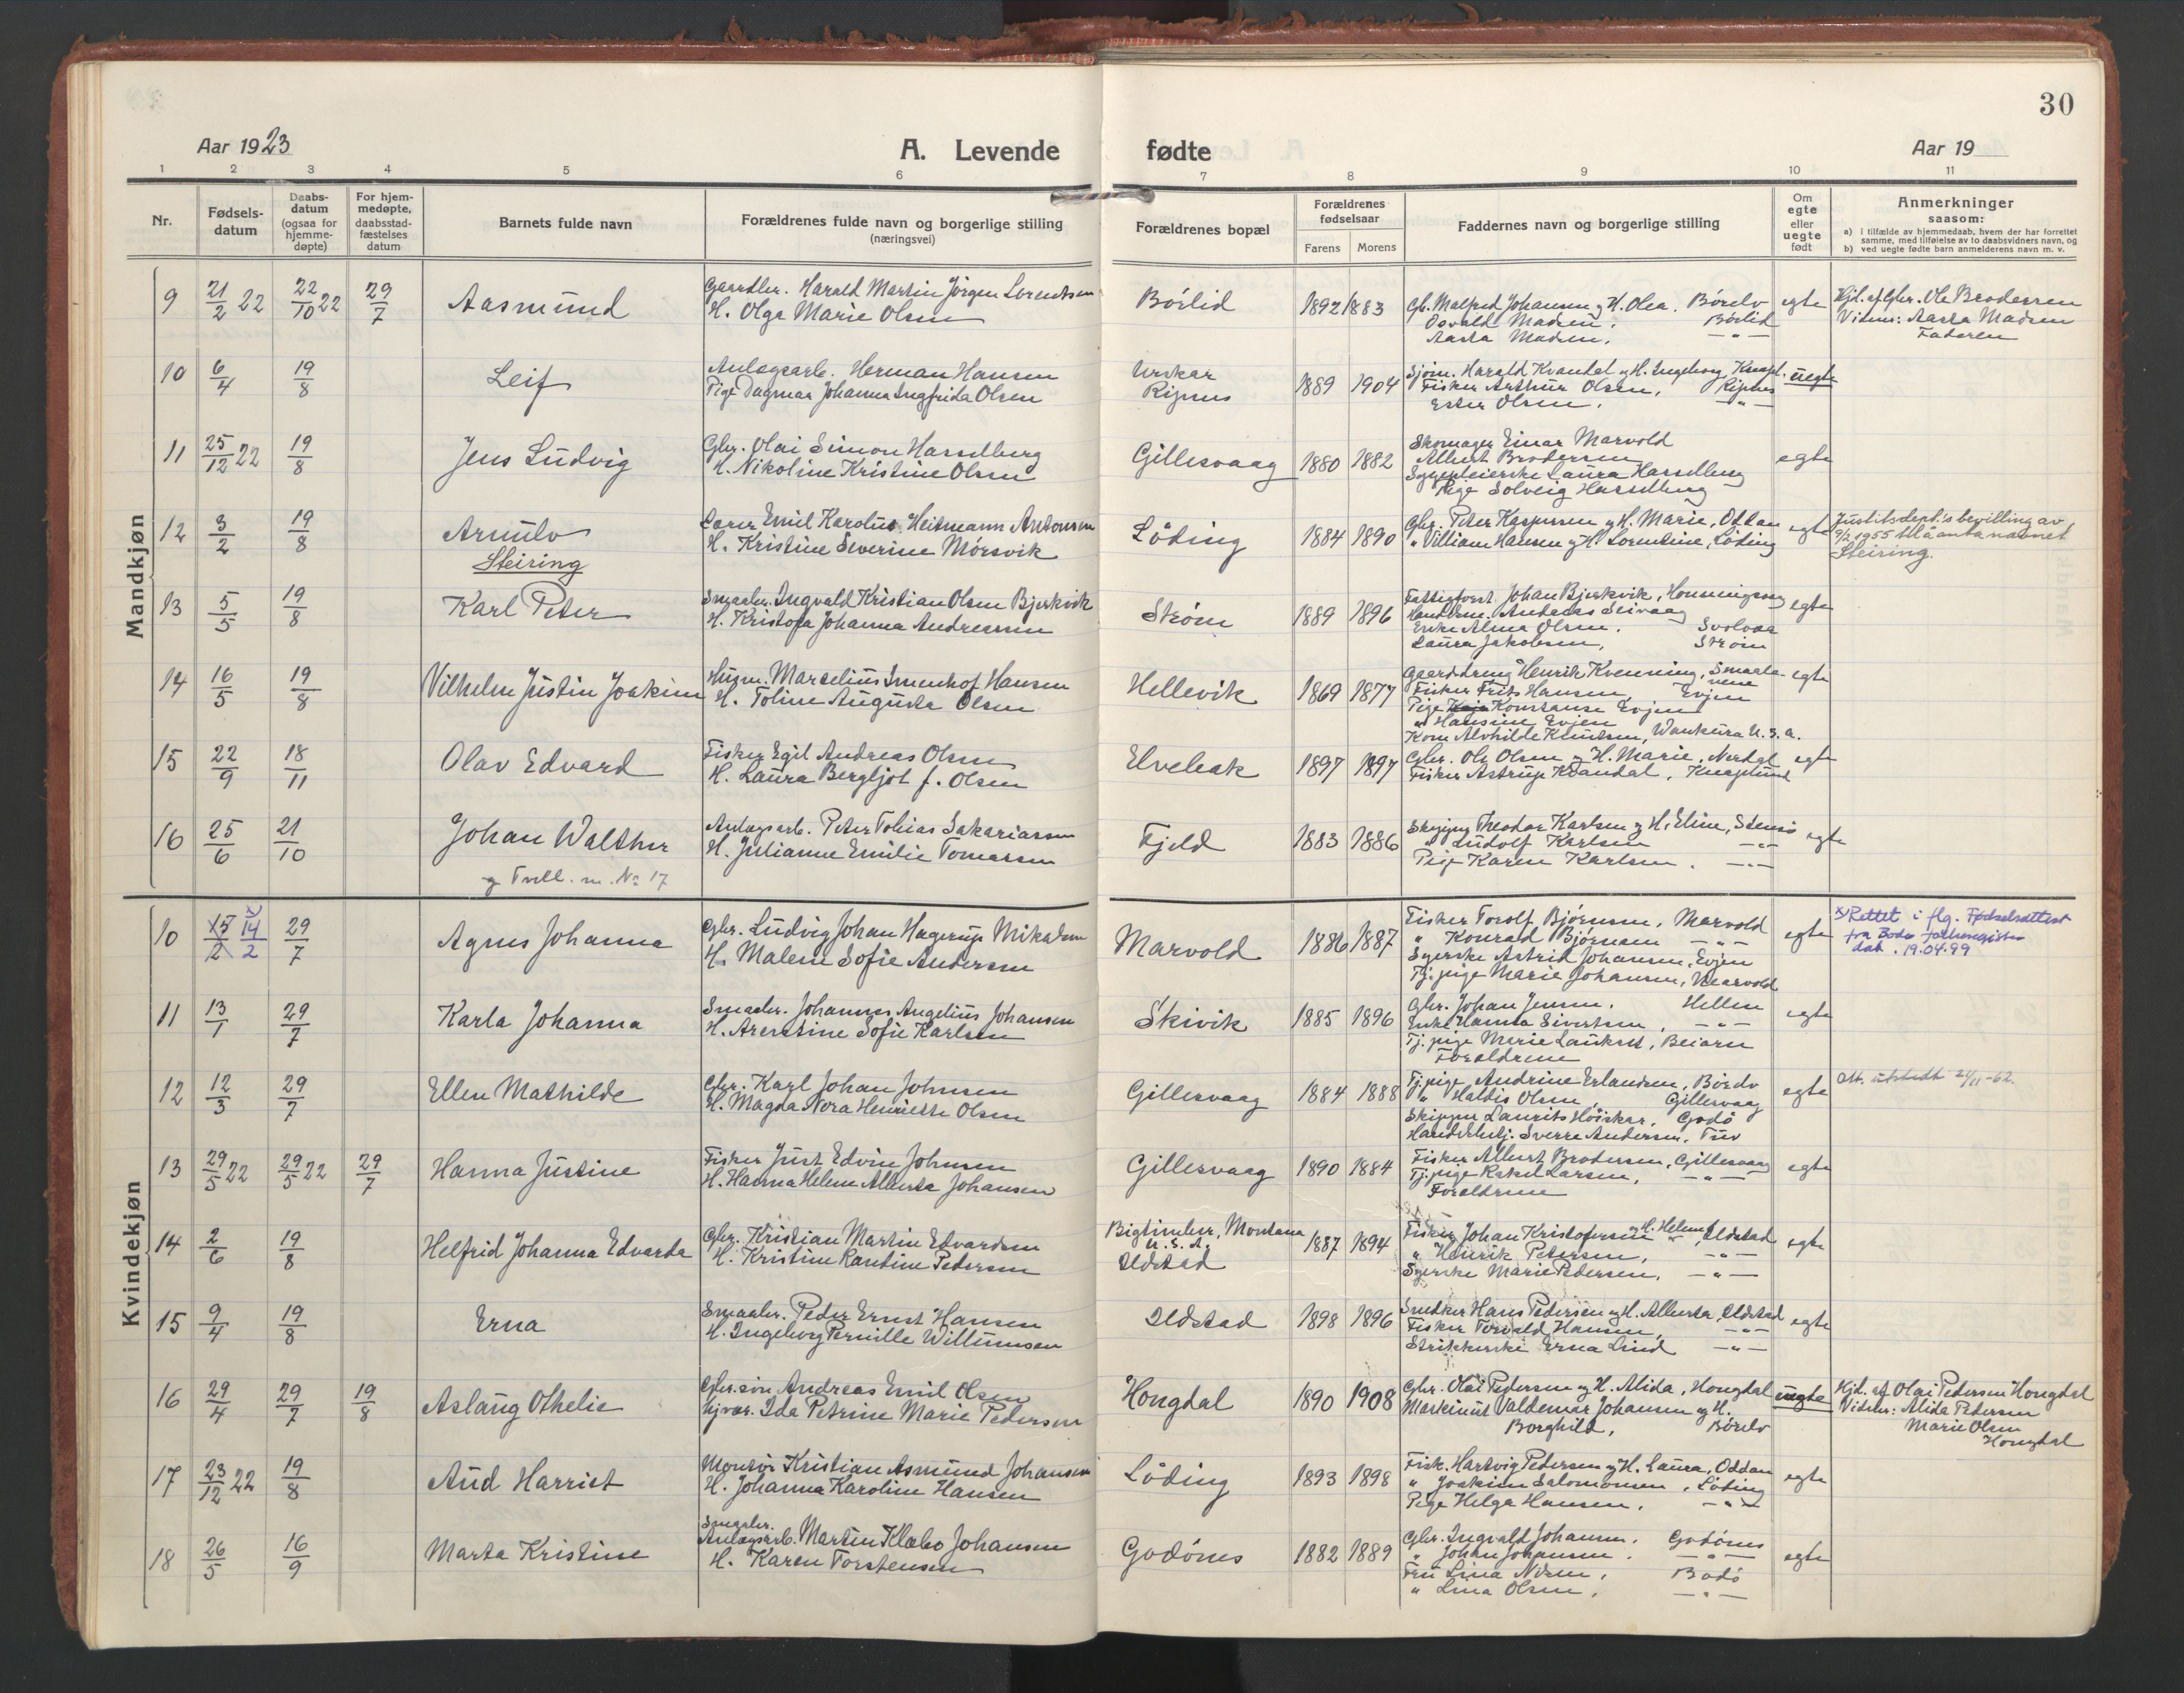 30
Aar 1923
A. Levende
fødte
Aar 19
1 2 3 4 5 6 7 8 9 10 11
Nr.
Fødsels-
datum
Daabs-
datum
(ogsaa for
hjemme-
døpte)
For hjem-
medøpte,
daabsstad-
fæstelses
datum
Barnets fulde navn
Forældrenes fulde navn og borgerlige stilling
(næringsvei)
Forældrenes bopæl
Forældrenes
fødselsaar
Farens Morens
Faddernes navn og borgerlige stilling
Om
egte
eller
uegte
født
Anmerkninger
saasom:
a) i tilfælde av hjemmedaab, hvem der har forrettet
samme, med tilføielse av to daabsvidners navn, og
b) ved uegte fødte barn anmelderens navn m. v.
Mandkjøn
9 21/2 22 22/10 22 29/7 Aasmund
Gaardbr. Harald Martin Jørgen Lorentsen
H. Olga Marie Olsen
Börlid 1892 1883
Gb. Malfred Johansen og H. Olea. Börelv
Osvald Madsen, Börlid
Aasta Madsen, — " —
egte
Hjd. af Gbr. Ole Brodersen
Vidner: Aasta Madsen
Faderen
10 6/4 19/8 Leif
Anlægsarb. Herman Hansen
Pige Dagmar Johanna Ingfrida Olsen
Ripnes
1889 1904
Sjöm. Harald Kvandal og H. Ingeborg, Knapl.
Fisker Arthur Olsen, Ripnes
Ester Olsen, — " —
uegte
11 25/12 22 19/8 Jens Ludvig
Gbr. Olai Simon Hasselberg
H. Nikoline Kristine Olsen
Gillesvaag 1880 1882
Skomager Einar Marvold
Albert Brodersen
Sygepleierske Laura Hasselberg
Pige Solveig Hasselberg
egte
12 3/2 19/8 Arnulv
Steiring
Lærer Emil Karolius Heitmann Antonsen
H. Kristine Severine Mörsvik
Löding 1884 1890
Gbr. Peter Kaspersen og H. Marie, Oddan
" Villiam Hansen og H. Lorentine, Löding
egte
Justitsdept.'s bevilling av
9/2 1955 til å anta navnet
Steiring.
13 5/5 19/8 Karl Peter
Smaabr. Ingvald Kristian Olsen Bjerkvik
H. Kristofa Johanna Andreassen
Ström 1889 1896
Fattigforst. Johan Bjerkvik, Honningsvag
Handelsm. Andreas Seivaag
Enke Alma Olsen, Svolvær
Laura Jakobsen, Ström
egte
14 16/5 19/8 Vilhelm Justin Joakim
Husm. Marselius Imenhof Hansen
H. Toline Augusta Olsen
Hellevik 1869 1877
Gaarddreng Henrik Kvenning, Smaale-
nene
Fisker Frits Hansen, Evjen
Pige Konstanse Evjen
" Hansine Evjen
Kone Alvhilde Knutsen, U. S. A.
egte
15 22/9 18/11 Olav Edvard
Fisker Egil Andreas Olsen
H. Laura Bergljot f. Olsen
Elvebak 1897 1897
Gbr. Ole Olsen og H. Marie, Nerdal
Fisker Astrup Kvandal, Knaplund
egte
16 25/6 21/10 Johan Walther
og Tvill. m. No 17
Anlægsarb. Peter Tobias Sakariassen
H. Julianne Emilie Tomassen
Fjeld 1883 1886
Skipper Theodor Karlsen og H. Eline, Stensö
" Ludolf Karlsen — " —
Pige Karen Karlsen. — " —
egte
Kvindekjøn
10 15/2 x) 14/2 29/7 Agnes Johanna
Gbr. Ludvig Johan Hagerup Mikalsen
H. Malene Sofie Andersen
Marvold 1886 1887
Fisker Torolf Bjørnsen, Marvold
" Konrad Bjørnsen — " —
Syerske Astrid Johansen, Evjen
Tj. pige Marie Johansen, Mearvold
egte
x) Rettet i flg. Fødselsattest
fra Bodø folkeregister
dat. 19.04.99
11 13/1 29/7 Karla Johanna
Smaabr. Johannes Angelius Johansen
H. Arentine Sofie Karlsen
Skivik 1885 1896
Gbr. Johan Jensen, Hellen
Enke Hanna Sivertsen, — " —
Tj. pige Marie Laukslet, Beiarn
Forældrene
egte
12 12/3 29/7 Ellen Mathilde
Gbr. Karl Johan Johnsen
H. Magda Nora Henriette Olsen
Gillesvaag 1884 1888
Tj. pige Andrine Erlandsen, Börelv
" Haldis Olsen, Gillesvaag
Skipper Laurits Höiskar, Godö
Handelsbetj. Sverre Andersen, Tuv
egte
Att. utstedt 21/11-62.
13 29/5 22 29/5 22 29/7 Hanna Justine
Fisker Just Edvin Johnsen
H. Hanna Helene Alberta Johansen
Gillesvaag 1890 1884
Fisker Albert Brodersen, Gillesvaag
Tj. pige Rakel Larsen, — " —
Forældrene
egte
14 2/6 19/8 Helfrid Johanna Edvarda
Gbr. Kristian Martin Edvardsen
H. Kristine Rantine Pedersen
Bigtimber, Montana
U. S. A.
Ildstad
1887 1894
Fisker Johan Kristofersen og H. Helene, Ildstad
" Henrik Petersen, — " —
Syerske Marie Pedersen, — " —
egte
15 9/4 19/8 Erna
Smaabr. Peder Ernst Hansen
H. Ingeborg Pernille Willumsen
Ildstad 1898 1896
Snedker Hans Pedersen og H. Alberta, Ildstad
Fisker Torvald Hansen, — " —
Strikkerske Erna Lind — " —
egte
16 29/4 29/7 19/8 Aslaug Othelie
Gbr. søn Andreas Emil Olsen
Hjvær. Ida Petrine Marie Pedersen
Hongdal 1890 1908
Gbr. Olai Pedersen og H. Alida, Hongdal
Maskinist Valdemar Johansen og H.
Borghild, Börelv
uegte
Hjd. af Olai Pedersen Hongdal
Vidner: Alida Pedersen
Marie Olsen
Hongdal
17 23/12 22 19/8 Aud Harriet
Montör Kristian Asmund Johansen
H. Johanna Karoline Hansen
Löding 1893 1898
Fisk. Hartvig Pedersen og H. Laura, Oddan
" Joakim Salomonsen, Löding
Pige Helga Hansen, — " —
egte
18 26/5 16/9 Marta Kristine
Smaabr.
Anlægsarb. Martin Klæbo Johansen
H. Karen Torstensen
Godönes 1882 1889
Gbr. Ingvald Johansen, Godönes
" Johan Johansen. — " —
Fru Lina Nilsen, Bodö
" Lina Olsen, — " —
egte